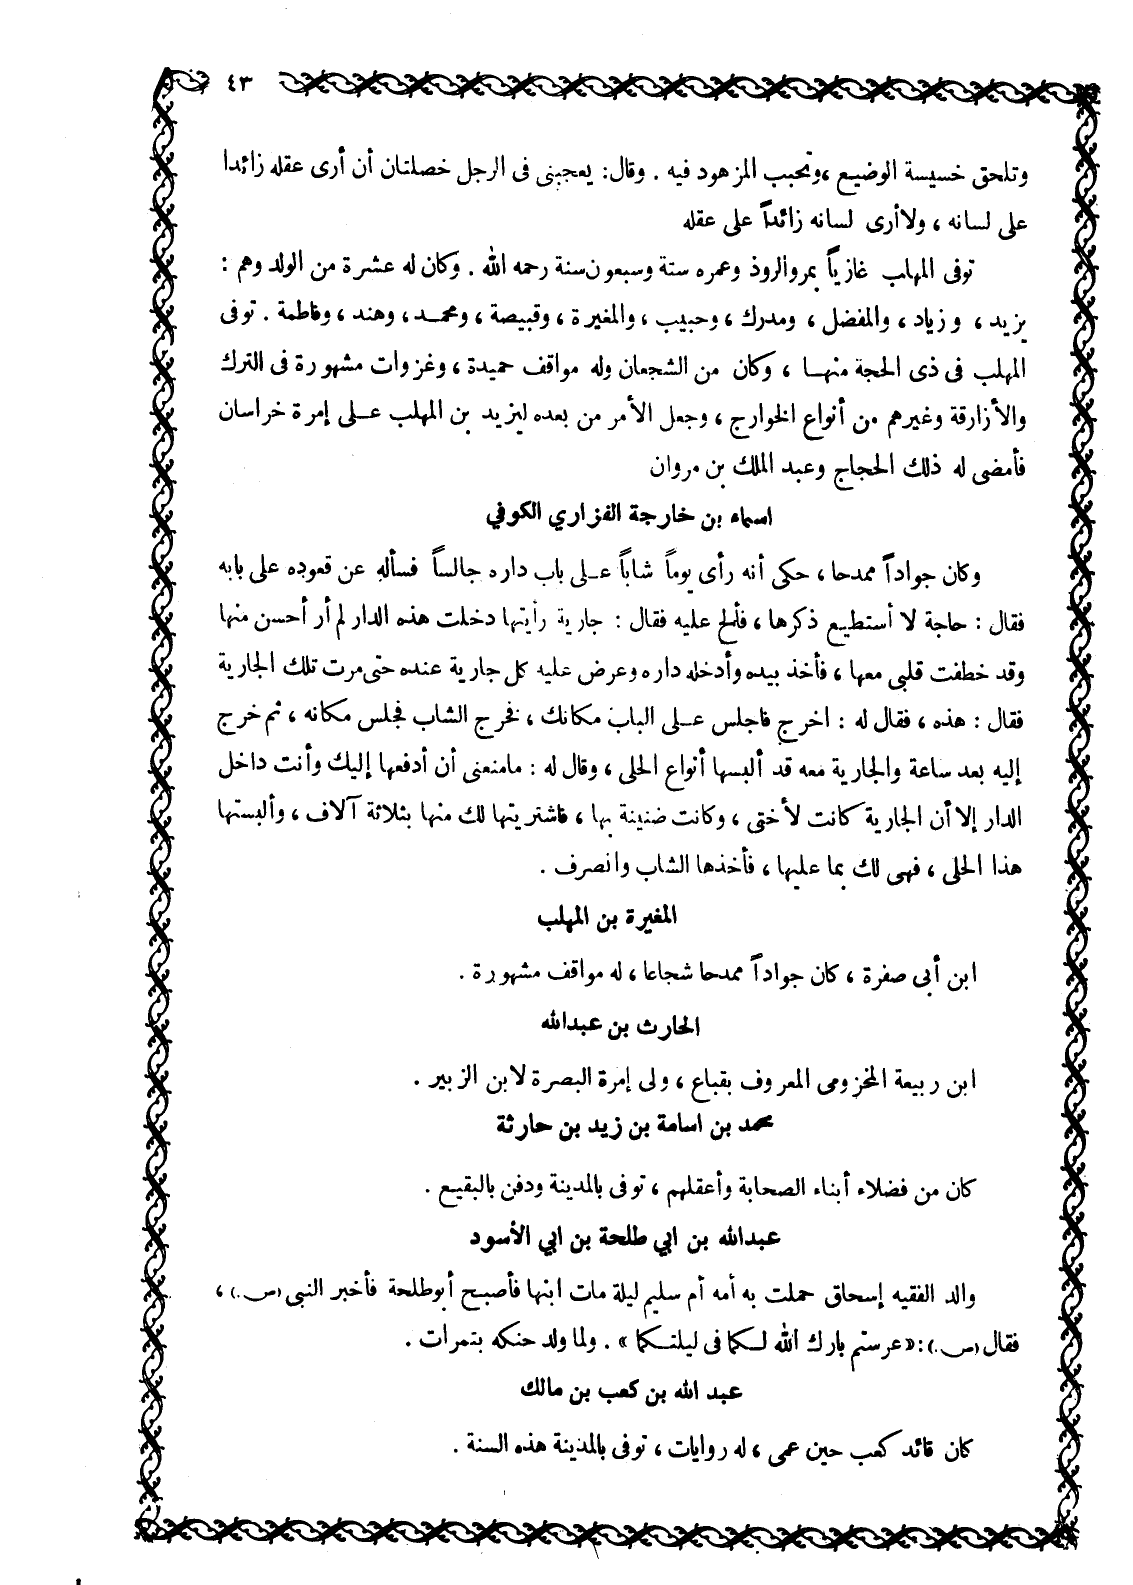 ٤٣
وتلحق خسيسة الوضيع ،وتحبب المزهود فيه . وقال: يعجبنى فى الرجل خصلتان أن أرى عقله زائدا
على لسانه ، ولاأرى لسانه زائداً على عقله
توفى المهلب غازياً بمروالروذ وعمره ستة وسبعون سنة رحمه الله . وكان له عشرة من الولد وهم :
يزيد ، وزياد ، والمفضل ، ومدرك ، وحبيب ، والمغيرة ، وقبيصة ، ومحمـد ، وهند ، وفاطمة . توفى
المهلب فى ذى الحجة منهـا ، وكان من الشجعان وله مواقف حميدة ، وغزوات مشهورة فى الترك
والأزارقة وغيرهم من أنواع الخوارج ، وجعل الأمر من بعده ليزيد بن المهلب عـلى إمرة خراسان
فأمضى له ذلك الحجاج وعبد الملك بن مروان
اسماء بن خارجة الفزاري الكوفي
وكان جواداً ممدحا ، حكى أنه رأى يوماً شاباً عـلى باب داره جالساً فسأله عن قعوده على بابه
فقال : حاجة لا أستطيع ذكرها ، فألح عليه فقال : جارية رأيتها دخلت هذه الدار لم أر أحسن منها
وقد خطفت قلبى معها ، فأخذ بيده وأدخله داره وعرض عليه كل جارية عنده حتى مرت تلك الجارية
فقال : هذه ، فقال له : اخرج فاجلس عـلى الباب مكانك ، فخرج الشاب فجلس مكانه ، ثم خرج
إليه بعد ساعة والجارية معه قد ألبسها أنواع الحلى ، وقال له : مامنعنى أن أدفعها إليك وأنت داخل
الدار إلا أن الجارية كانت لأختى ، وكانت ضنينة بها ، فاشتريتها لك منها بثلاثة آلاف ، وألبستها
هذا الحلى ، فهى لك بما عليها ، فأخذها الشاب وانصرف .
المغيرة بن المهلب
ابن أبى صفرة ، كان جواداً ممدحا شجاعا ، له مواقف مشهورة .
الحارث بن عبدالله
ابن ربيعة المخزومى المعروف بقباع ، ولى إمرة البصرة لابن الزبير .
محمد بن اسامة بن زيد بن حارثة
كان من فضلاء أبناء الصحابة وأعقلهم ، توفى بالمدينة ودفن بالبقيع .
عبدالله بن ابي طلحة بن ابي الأسود
والد الفقيه إسحاق حملت به أمه أم سليم ليلة مات ابنها فأصبح أبوطلحة فأخبر النبى (ص.) ،
فقال (ص.) :« عرستم بارك الله لـكما فى ليلتـكما » . ولما ولد حنكه بتمرات .
عبد الله بن كعب بن مالك
كان قائد كعب حين عمى ، له روايات ، توفى بالمدينة هذه السنة .